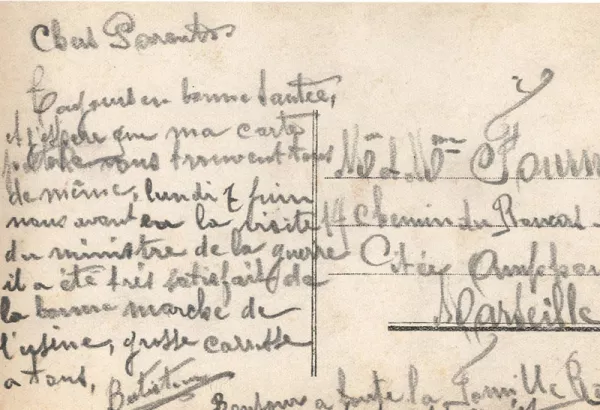 Chers Parents
Toujours en bonne santée,
et j'espère que ma carte
vous trouvent tous
de même, lundi 7 juin
nous avont eu la visite
du ministre de la guerre
il a été très satisfait de
la bonne marche de
l'usine, grosse caresse
a tous,
Mr et Mme Fourn
Chemin du
Citée
Marseille
Bonjour a toute la famille